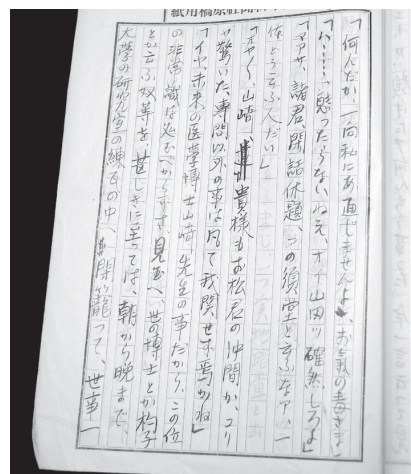 「何んだか、一向私にあ直じませんよ、お気の毒さま」
「ハ……、愍ったらないねえ、オイ山田ツ確然しろよ」
「マアサ、諸君閑話休題、この須堂と云ふなア、一
体どう云ふ人だい」
「オヤイ山崎、貴様もお松君の仲間か、コリ
ャ驚いた、専問以外の事は凡て我関せず焉かね」
「イヤ、未来の医学博士山崎先生の事だから、この位
の非常識は必むべからずす、見玉へ、世の博士とか杓子
とか云ふ奴等を、甚しきに至っては、朝から晩まで、
大學の研究室の練瓦の中へ閉ぢ籠って、世事一